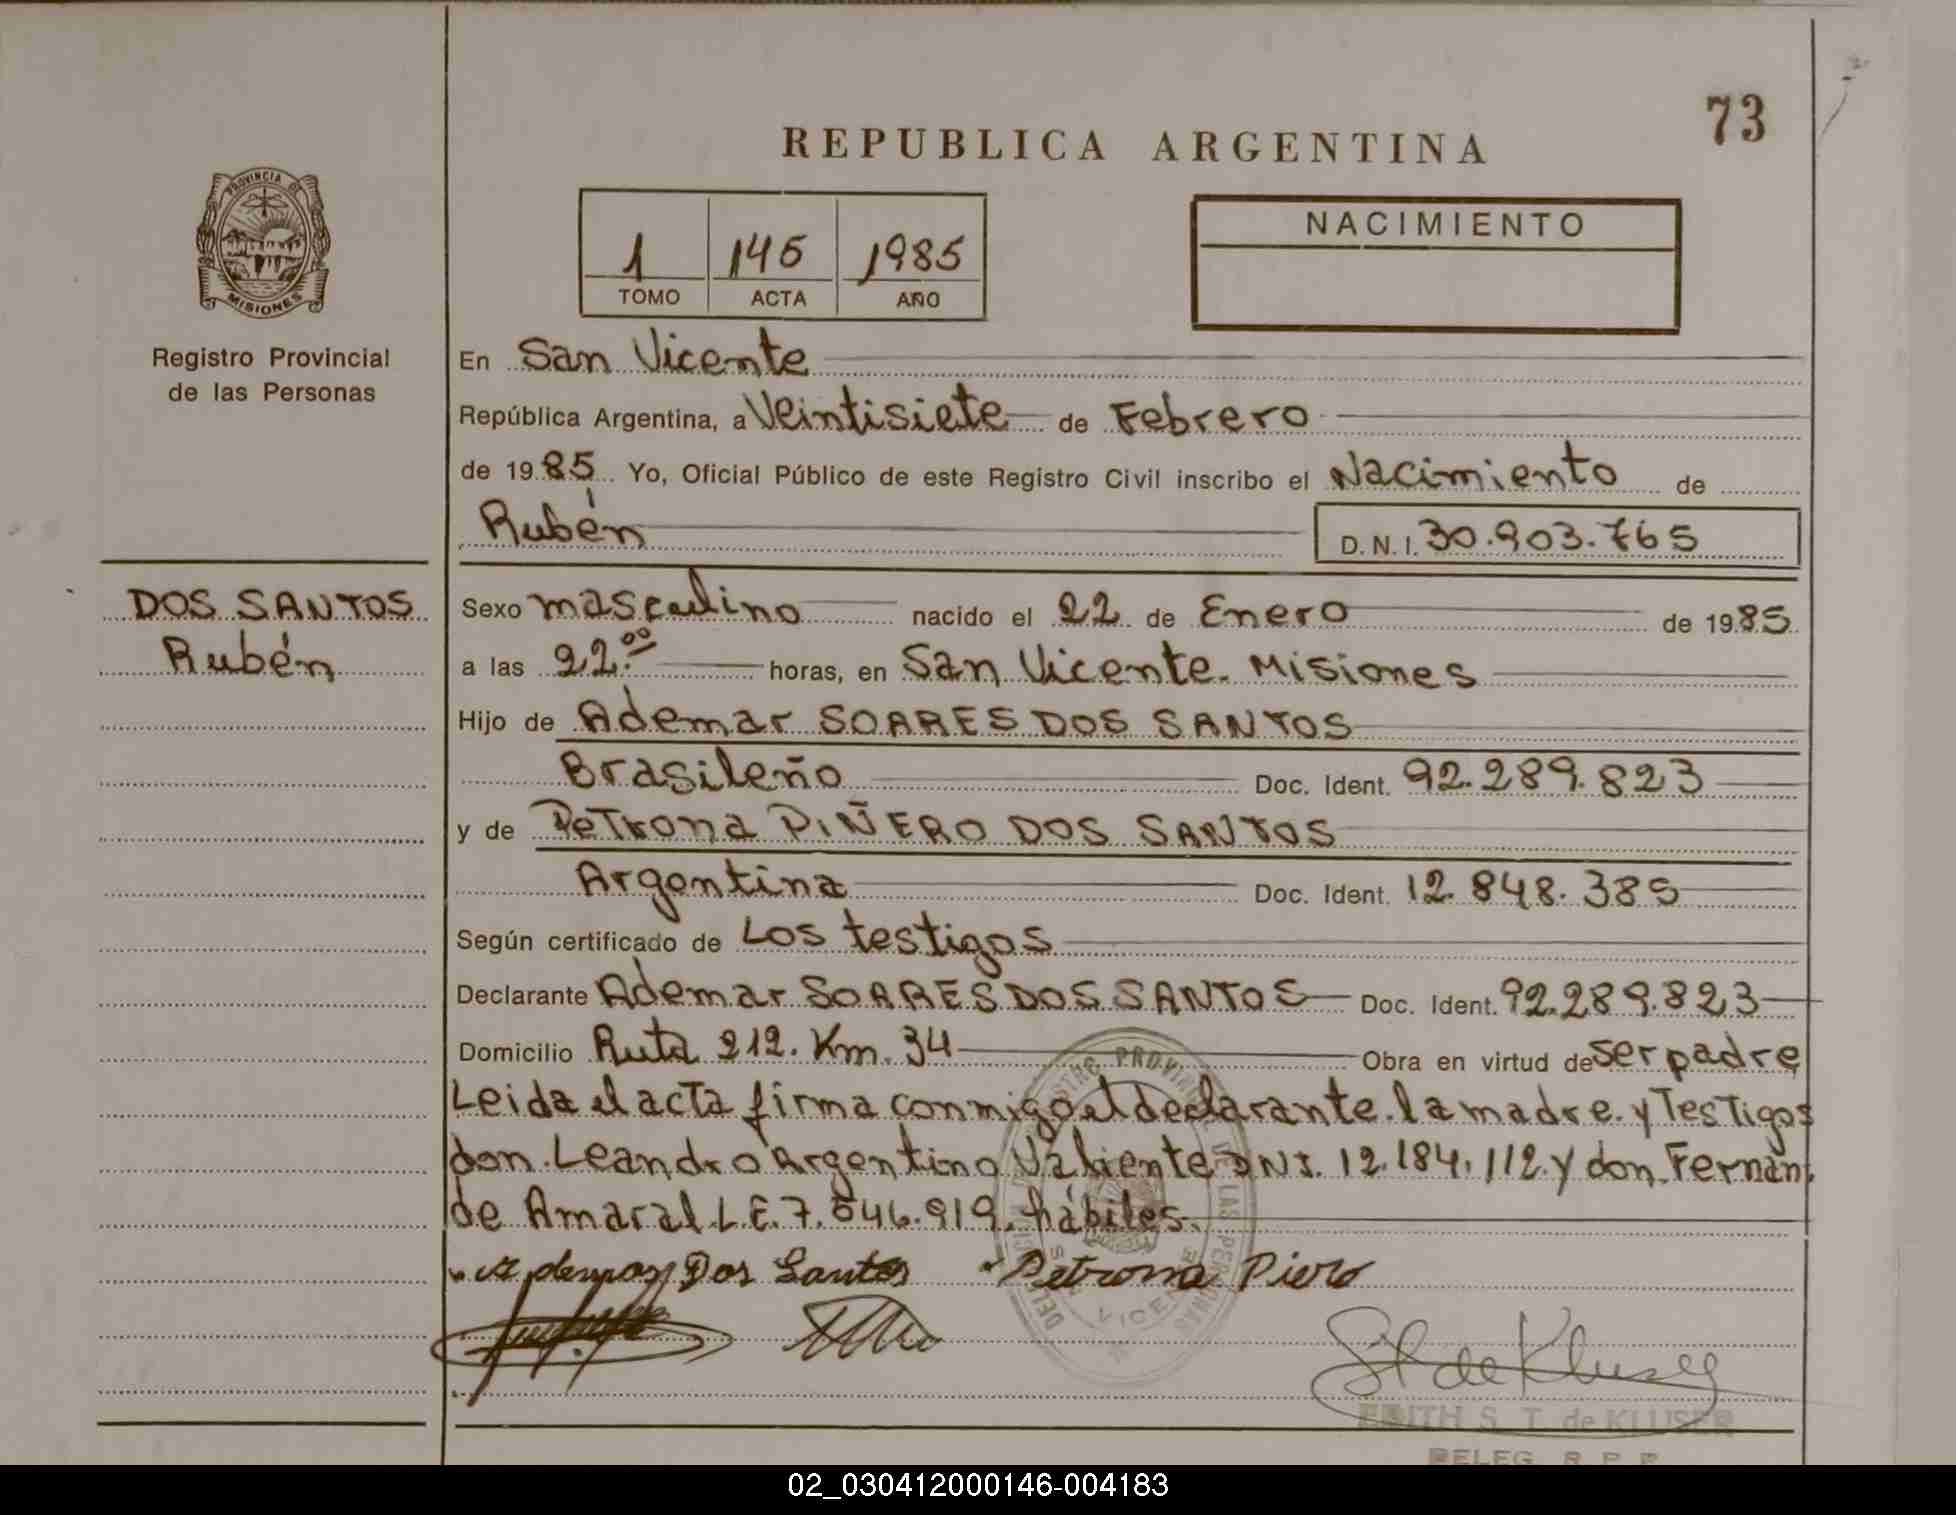 73
REPUBLICA ARGENTINA
PROVINCIA DE
MISIONES
Registro Provincial
de las Personas
1 145 1985
TOMO ACTA AÑO
NACIMIENTO
En San Vicente
República Argentina, a Veintisiete de Febrero
de 1985 Yo, Oficial Público de este Registro Civil inscribo el Nacimiento de
Rubén D.N.I. 30.903.765
DOS SANTOS
Rubén
Sexo masculino nacido el 22 de Enero de 1985
a las 22.00 horas, en San Vicente. Misiones
Hijo de Ademar SOARES DOS SANTOS
Brasileño Doc. Ident. 92.289.823
y de Petrona PIÑERO DOS SANTOS
Argentina Doc. Ident. 12.848.385
Según certificado de Los testigos
Declarante Ademar SOARES DOS SANTOS Doc. Ident. 92.289.823
Domicilio Ruta 212. Km. 34 Obra en virtud de ser padre
Leida el acta firma conmigo el declarante. la madre. y Testigos
don. Leandro Argentino Valiente DNI. 12.184.112. y don. Fernan.
de Amaral L.E. 7.546.919. hábiles.
Dos Santos Petrona Piero
St de Kluser
EDITH S. T. de KLUSER
DELEG. R. P. P.
02_030412000146-004183